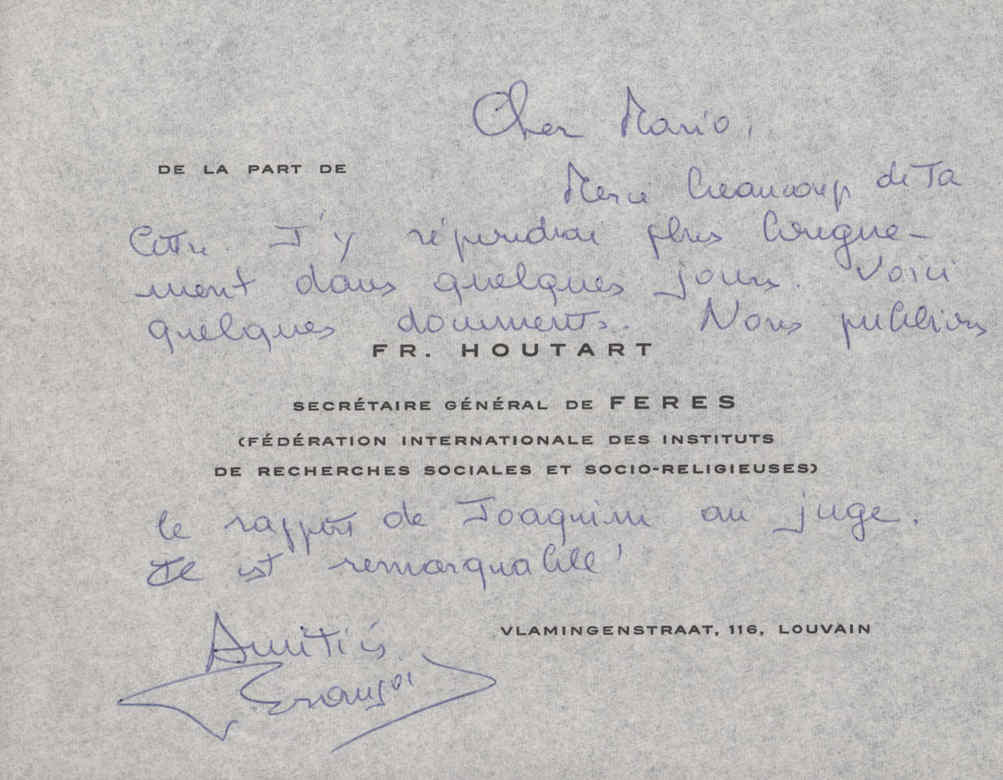 Cher Mario,
DE LA PART DE
Merci beaucoup de Ta
lettre. J'y répondrai plus longue-
ment dans quelques jours. Voici
quelques documents. Nous publions
FR. HOUTART
SECRÉTAIRE GÉNÉRAL DE FERES
(FÉDÉRATION INTERNATIONALE DES INSTITUTS
DE RECHERCHES SOCIALES ET SOCIO-RELIGIEUSES)
le rapport de Joaquim au juge.
Il est remarquable!
VLAMINGENSTRAAT, 116, LOUVAIN
Amitiés
François